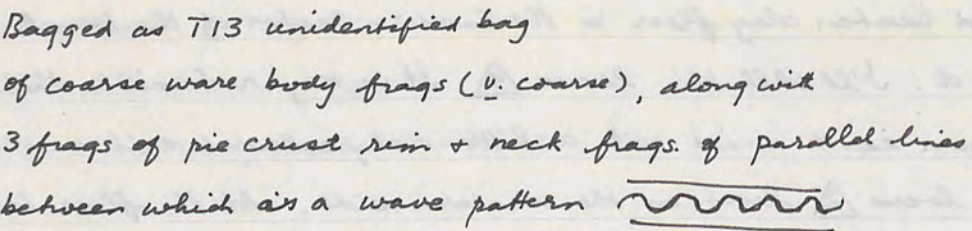 Bagged as T13 unidentified bag
of coarse ware body frags (v. coarse), along with
3 frags of pie crust rim + neck frags. of parallel lines
between which is a wave pattern